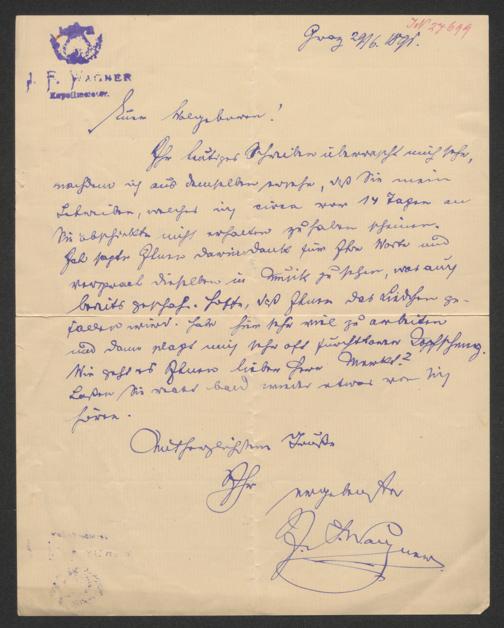 I.N 27699
Graz 29/6. 1891.
J. F. WAGNER
Kapellmeister.
Euer Wolgeboren!
Ihr heutiges Schreiben überrascht mich sehr,
nachdem ich aus demselben ersehe, daß Sie mein
Schreiben, welches ich circa vor 14 Tagen an
Sie abschickte nicht erhalten zu haben scheinen.
Ich sagte Ihnen darin dank für Ihre Worte und
versprach dieselben in Musik zu setzen, was auch
bereits geschah. Hoffe, daß Ihnen das Liedchen ge-
fallen wird. Habe hier sehr viel zu arbeiten
und dann plagt mich sehr oft furchtbarer Kopfschmerz.
Wie geht es Ihnen lieber Herr Merkt?
Laßen Sie recht bald wieder etwas von sich
hören.
Mit herzlichsten Gruße
Ihr
ergebenster
J. F. Wagner